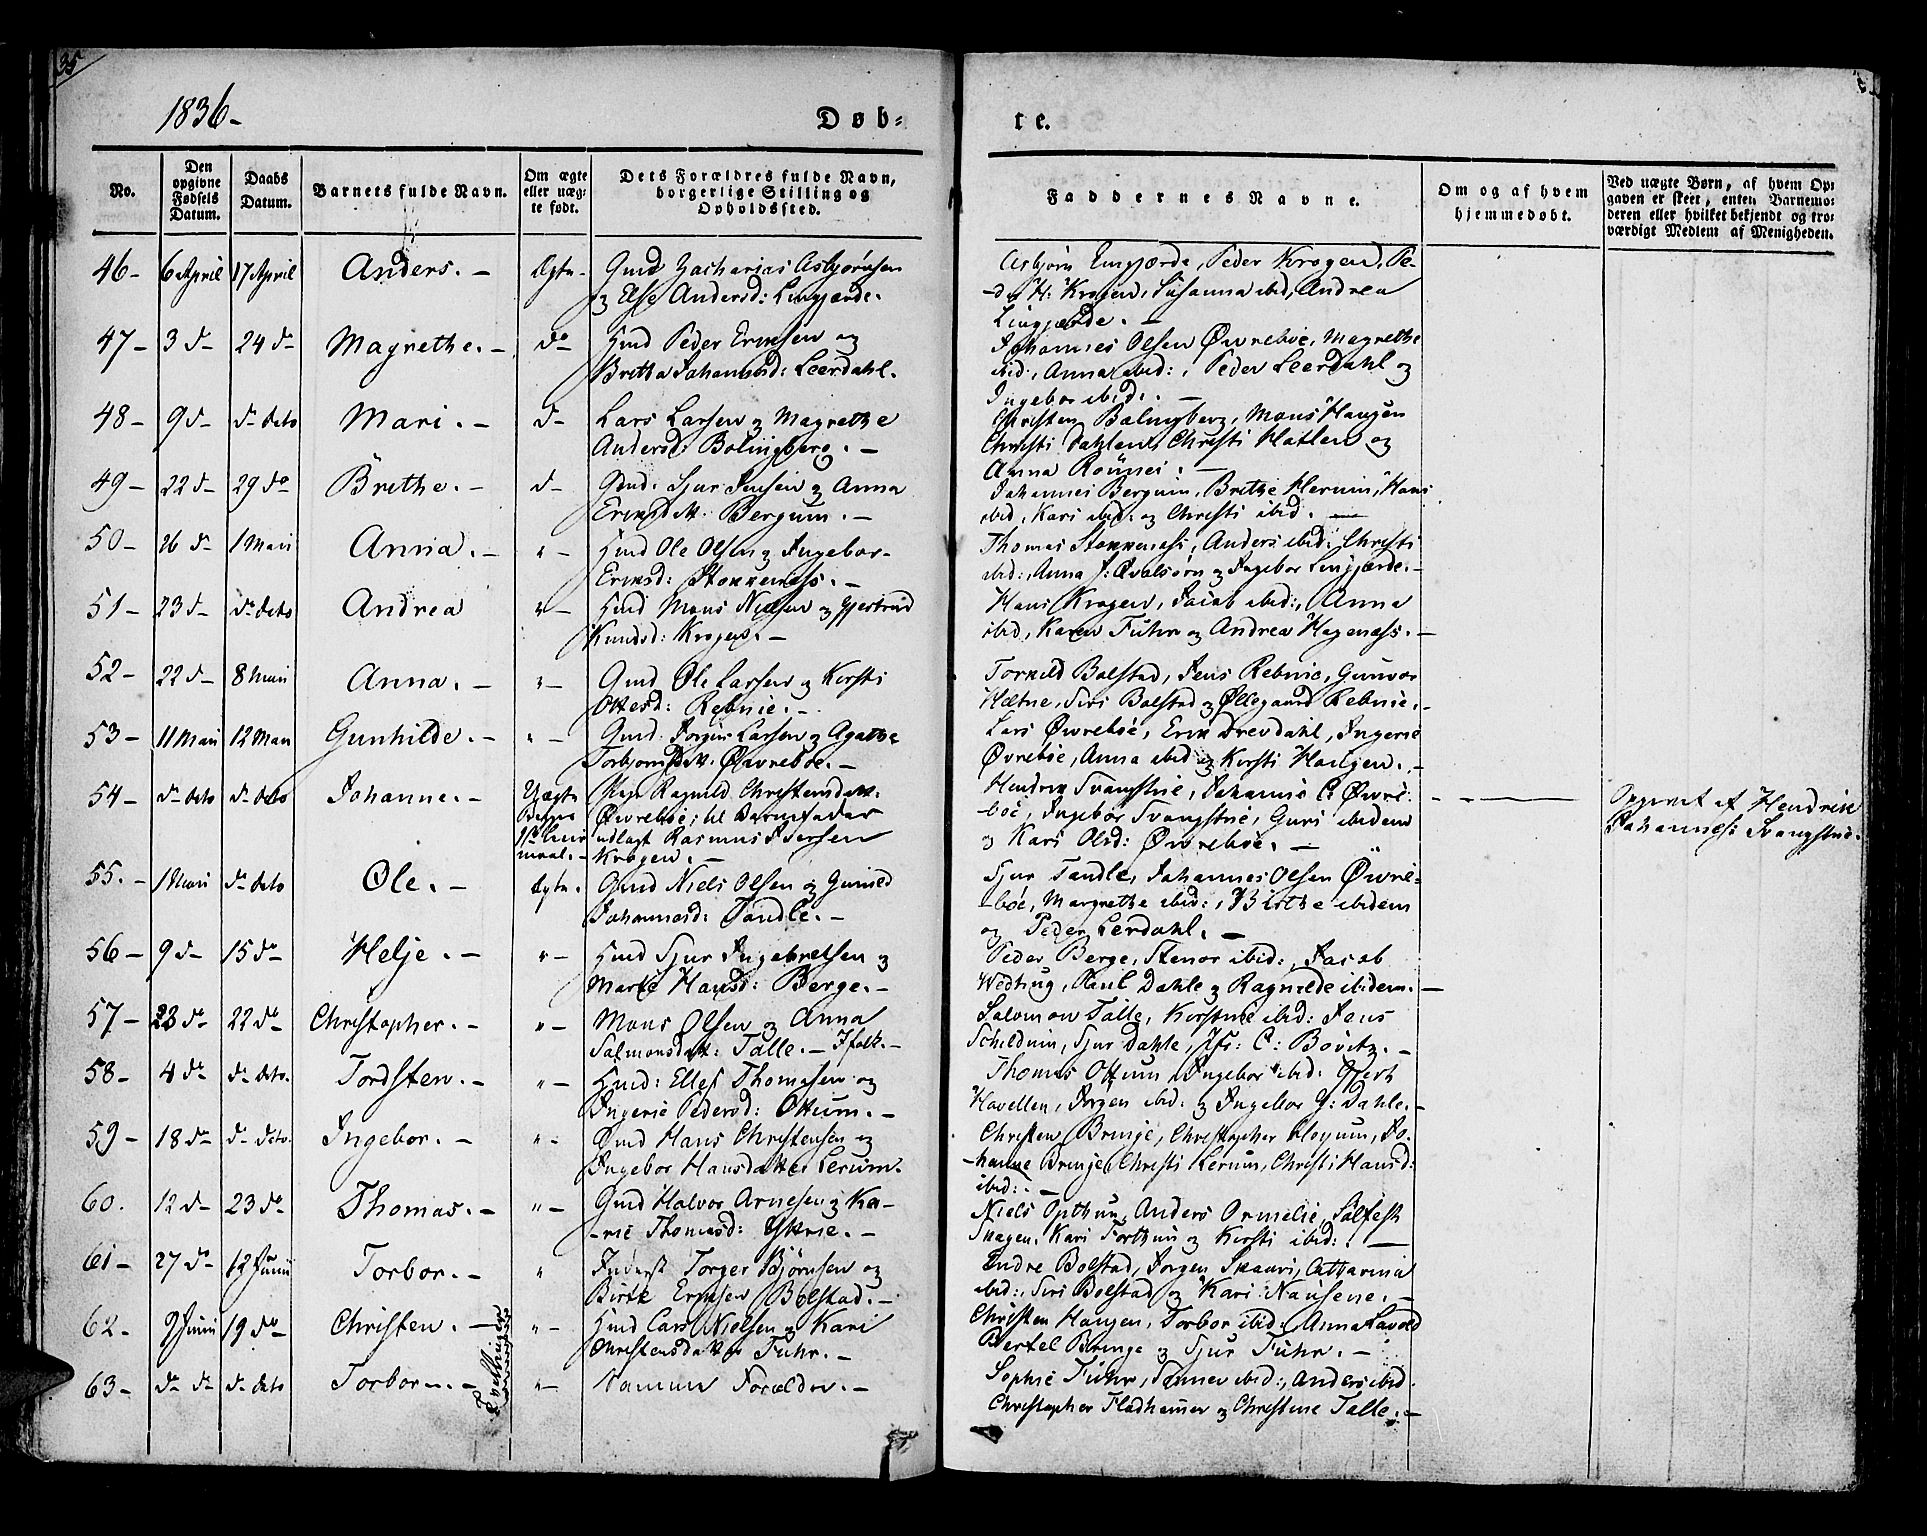 35
1836-
Døb-
te.
No.
Den opgivne Fødsels Datum.
Daabs Datum.
Barnets fulde Navn.
Om ægte eller uægte født.
Dets Forældres fulde Navn, borgerlige Stilling og Opholdssted.
Faddernes Navne.
Om og af hvem hjemmedøbt.
Ved uægte Børn, af hvem Opgaven er skeet, enten Barnemoderen eller hvilket bekjendt og troværdigt Medlem af Menigheden.
46- 6 April 17 April Anders. - Ægte- Gmd Zacharias Asbjørnsen
og Else Andersd: Lingjærde.
Asbjørn Lingjærde, Peder Krogen, Pe-
-der H: Krogen, Susanna ibid, Andrea
Lingjærde. -
47- 3 d- 24 d- Magrethe. - do Hmd Peder Ericksen og
Britta Johannesd: Leerdahl.
Johannes Olsen Øvreboe, Magrethe
ibid:, Anna ibid:, Peder Leerdahl og
Ingebor ibid. -
48- 9 d- d- deto Mari. - d- Lars Larsen og Magrethe
Andersd: Bolingberg. -
Christen Bolingberg, Mons Haugen
Christi Dahlen, Christi Hatlen og
Anna Rönnei. -
49- 22 d- 29 do Brithe. - d- Gmd. Sjur Jensen og Anna
Bergum. -
Johannes Bergum, Brithe Hervim, Hans
ibid, Kari ibid. og Christi ibid. -
50- 26 d- 1 Maii Anna. - " - Hmd Ole Olsen og Ingebor-
Ericksd: Stokkenæss. -
Thomas Stokkenæss, Anders ibid: Christi
ibid:, Anna og Ingebor Lingjærde. -
51- 23 d- d- deto Andrea " - Hmd Mons Nielsen og Gjertrud
Knudsd: Krogen. -
Hans Krogen, Jacob ibid:, Anna
ibid, Karen Fuhr og Andrea Hagenæss. -
52- 22 d- 8 Maii Anna. - " - Gmd Ole Larsen og Kirsti
Ottesd: Rebnie. -
Torkild Bolstad, Jens Rebnie, Gunvor
Hætne, Siri Bolstad og Øllegaard Rebnie. -
53- 11 Maii 12 Maii Gunhilde. - " - Gmd. Jørgen Larsen og Agathe
Torbjørnsdtt: Øvreboe. -
Lars Øvreboe, Erik Drevdahl, Ingerie
Øvreboe, Anna ibid og Kirsti Haugen. -
54- d- deto d- deto Johanne. - Uægte Pige Ragnild Christensdatt:
Øvreboe; til Barnefader
udlagt Rasmus Iversen
Krogen. -
Hendrik Svangstrie, Johannes C: Øvre-
boe, Ingebor Svangstrie, Guri ibidem
og Kari Olsd: Øvreboe. -
Opgivet af Hendrik
Johannes: Svangstrie.
55. - 1 Maii d- deto Ole. - Ægte. Gmd Niels Olsen og Gunild
Johannesd: Tandle. -
Sjur Tandle, Johannes Olsen Øvre-
-boe, Margrethe ibid:, Birthe ibidem
og Peder Lerdahl. -
56- 9 d- 15 do Helje. - " - Hmd Sjur Ingebretsen og
Marte Hansd: Berge. -
Peder Berge, Stenor ibid:, Jacob
Wedhug, Paul Dahle og Ragnilde ibidem. -
57- 23 do 22 do Christopher. - " - Mons Olsen og Anna
Salmonsdatt: Talle. - Ifolk. -
Salomon Talle, Kirstine ibid: Jens
Schildnin, Sjur Dahle, Jfr: C: Bövitz. -
58- 4 do d- deto. Tordsten. - " - Hmd: Ellef Thomesen og
Ingerie Pedersd: Ottum. -
Thomas Ottum, Ingebor ibid: Gjert
Havellen, Jørgen ibid: og Ingebor G: Dahle. -
59- 18 do d- deto. Ingebor. - " - Gmd Hans Christensen og
Ingebor Hansdatter Lerum.
Christen Bringe, Christopher Høyum, Jo-
-hanne Bringe, Christi Lerum, Christi Hansd:
ibid:. -
60. 12 d- 23 do Thomas. - " - Gmd Halvor Arnesen og Ka-
-rie Thomasd: Ytterie. -
Niels Opthun, Anders Ormelie, Sølfest
Skagen, Kari Forthun og Kirsti ibid: -
61- 27 do 12 Junii Torbor. - " Inderst Torger Bjørnsen og
Birte Ericksen Bolstad. -
Endre Bolstad, Jørgen Skaari, Catharina
ibid:, Siri Bolstad og Kari Nausene. -
62- 9 Junii 19 do Christen. - " - Hmd Lars Nielsen og Kari
Christensdatter Fuhr. -
Christen Haugen, Torbor ibid:, Anna Lavold
Bertel Bringe og Sjur Fuhr. -
Tvillinger
63- d- d- d- deto Torbor. - " - Samme Forældre. -
Sophie Fuhr, ibid:, Anders ibid.
Christopher Fladhamer og Christine Talle. -